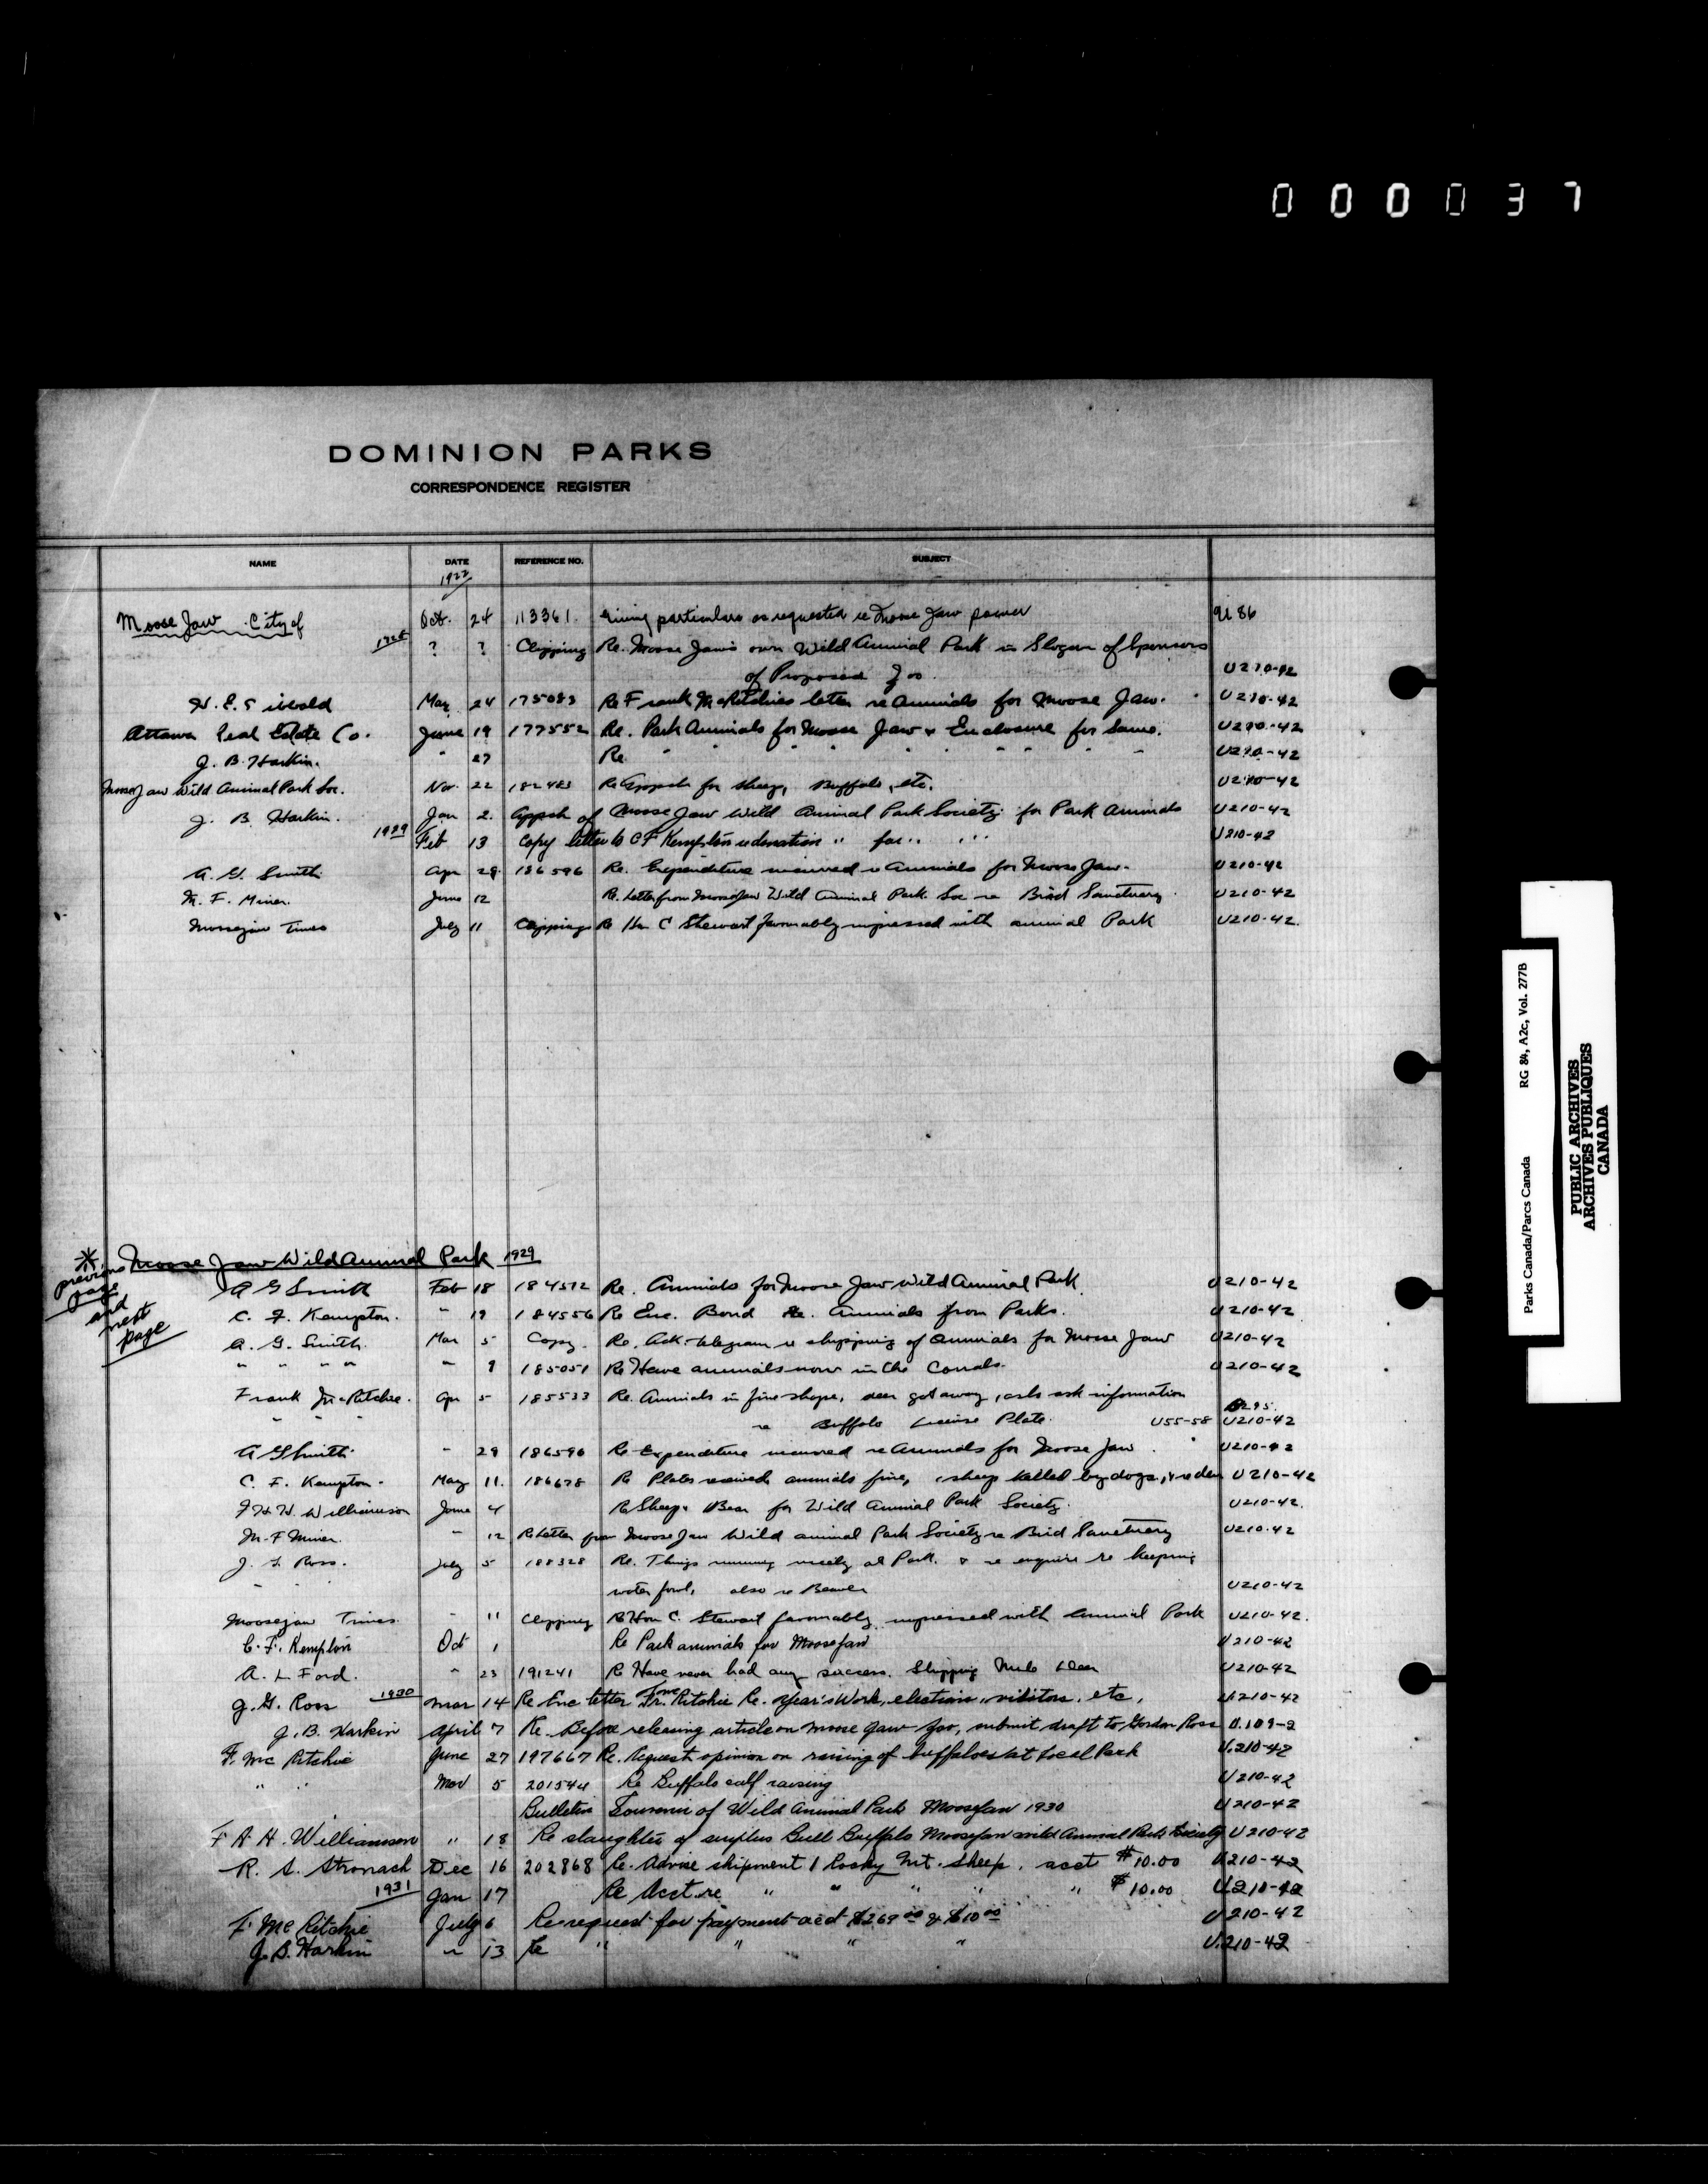 0 0 0 0 3 7
DOMINION PARKS
CORRESPONDENCE REGISTER
NAME DATE REFERENCE NO. SUBJECT
1922
Moose Jaw City of Oct. 24 113361. Giving particulars as requested re Moose Jaw power U 86
1928 ? ? Clipping Re. Moose Jaw's own Wild Animal Park is Slogan of Sponsors
of Proposed Zoo. U210-42
May 24 175083 Re Frank McRitchies letter re Animals for Moose Jaw. U210-42
Ottawa Real Estate Co. June 19 177552 Re. Park Animals for Moose Jaw & Enclosure for Same. U210-42
J. B. Harkin. " 27 Re. " " " " " " " " U210-42
Moose Jaw Wild Animal Park Soc. Nov. 22 182483 Re for sheep, Buffalo, etc. U210-42
J. B. Harkin. Jan 2. Appsh of Moose Jaw Wild Animal Park Society for Park Animals U210-42
1929 Feb 13 Copy letter to C F Kempton re donation " for " " U210-42
A. G. Smith Apr 29 186596 Re. Expenditure incurred re Animals for Moose Jaw. U210-42
M. F. Miner. June 12 Re. Letter from Moose Jaw Wild Animal Park Soc re Bird Sanctuary U210-42
Moosejaw Times July 11 Clippings Re Hon C Stewart favourably impressed with animal Park U210-42.
* Moose Jaw Wild Animal Park 1929
previous page and next page
A G Smith Feb 18 184512 Re. Animals for Moose Jaw Wild Animal Park. U210-42
C. F. Kempton. " 19 184556 Re Enc. Bond Re. Animals from Parks. U210-42
A. G. Smith. Mar 5 Copy. Re. Ack. telegram re shipping of animals for Moose Jaw U210-42
" " " " " 9 185051 Re Have animals now in the Corrals. U210-42
Frank McRitchie. Apr 5 185533 Re. Animals in fine shape, deer got away, ask information
" " " re Buffalo License Plate. U55-58 U210-42
A G Smith " 29 186596 Re Expenditure incurred re Animals for Moose Jaw. U210-42
C. F. Kempton. May 11. 186678 Re Plates received animals fine, 1 sheep killed by dogs, & re deer U210-42
F H H. Williamson June 4 Re Sheep & Bear for Wild Animal Park Society. U210-42.
M. F Miner. " 12 Re Letter from Moose Jaw Wild animal Park Society re Bird Sanctuary U210-42
J. G. Ross. July 5 188328 Re. Things running nicely at Park. & re enquire re keeping
" " water fowl, also re Beaver U210-42
Moosejaw Times. " 11 Clipping Re Hon C. Stewart favourably impressed with Animal Park U210-42.
C. F. Kempton Oct 1 Re Park animals for Moosejaw U210-42
A. L Ford. " 23 191241 Re Have never had any success. Shipping Mule Deer U210-42
J. G. Ross 1930 Mar 14 Re Enc letter from McRitchie Re. Year's Work, election, visitors, etc. U.210-42
J. B. Harkin April 7 Re. Before releasing article on Moose Jaw Zoo, submit draft to Gordon Ross U.109-2
F. Mc Ritchie June 27 197667 Re. Request opinion on raising of buffaloes at Local Park U.210-42
" " Nov 5 201544 Re Buffalo calf raising U210-42
Bulletin Souvenir of Wild Animal Park Moosejaw 1930 U210-42
F H H. Williamson " 18 Re slaughter of surplus Bull Buffalo Moosejaw wild Animal Park Society U210-42
R. S. Stronach Dec 16 202868 Re. Advise shipment 1 Rocky Mt. Sheep. acct $10.00 U.210-42
1931 Jan 17 Re Acct. re " " " " " $10.00 U.210-42
F. McRitchie July 6 Re request for payment acct $269.00 & $10.00 U210-42
J. B. Harkin " 13 Re " " " " U.210-42
Parks Canada/Parcs Canada RG 84, A2c, Vol. 277B
PUBLIC ARCHIVES
ARCHIVES PUBLIQUES
CANADA